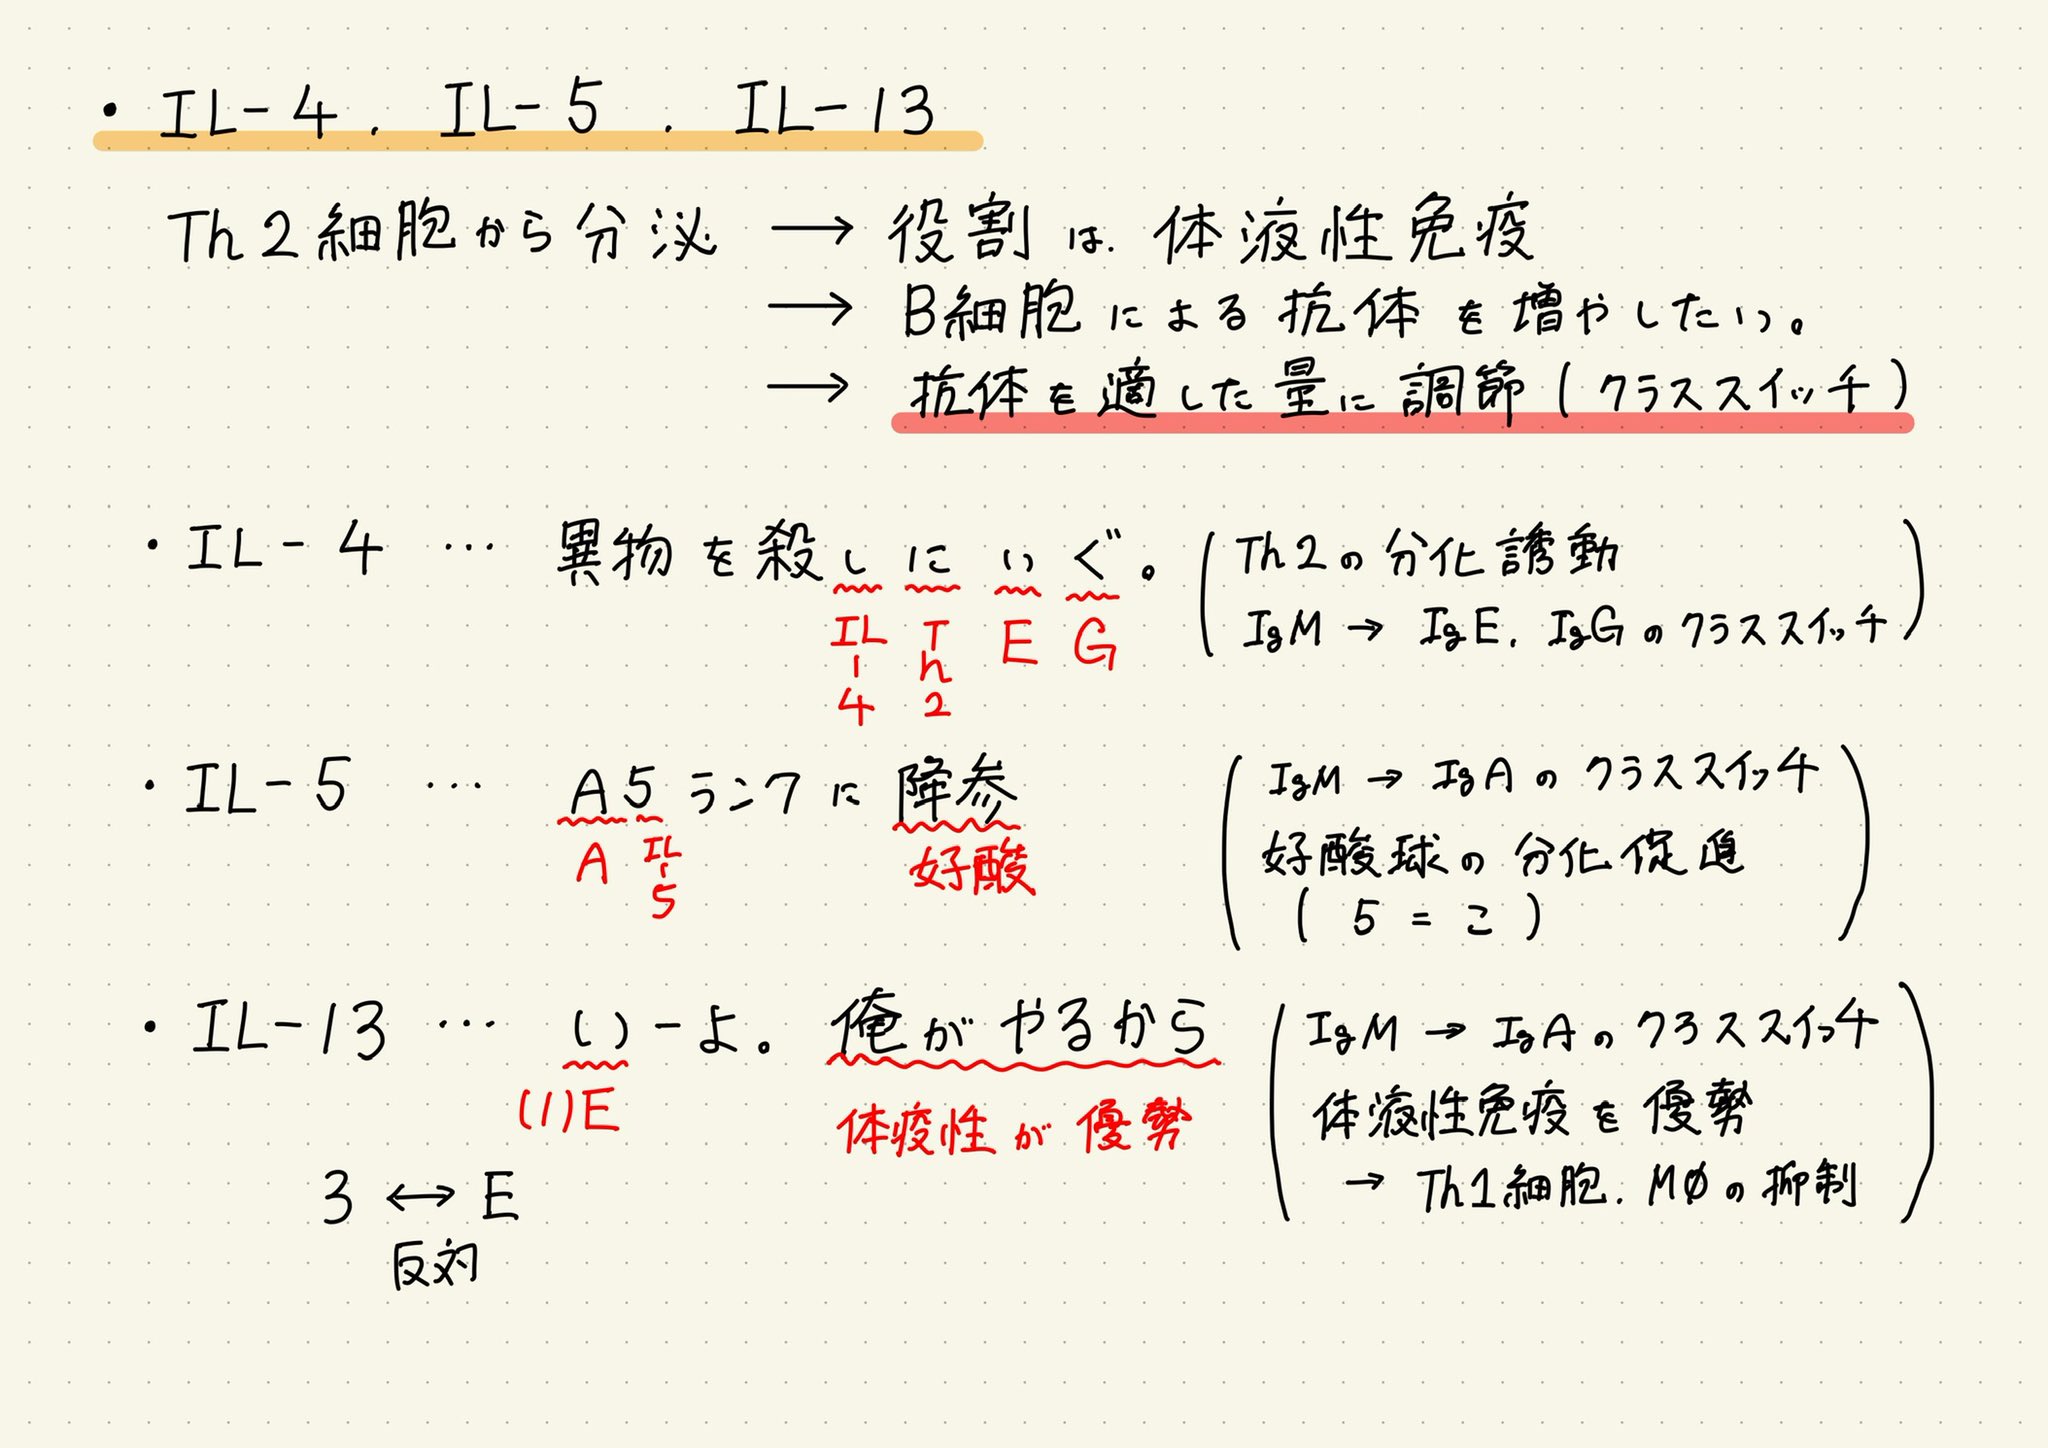 ・IL-4. IL-5. IL-13
Th2細胞から分泌 → 役割は. 体液性免疫
→ B細胞による抗体を増やしたい。
→ 抗体を適した量に調節(クラススイッチ)
・IL-4 … 異物を殺しにいぐ。
IL-4 Th2 E G
(Th2の分化誘動
IgM → IgE. IgGのクラススイッチ)
・IL-5 … A5ランクに降参
A IL-5 好酸
(IgM → IgAのクラススイッチ
好酸球の分化促進
(5=こ))
・IL-13 … いーよ。俺がやるから
(1)E 体疫性が優勢
(IgM → IgAのクラススイッチ
体液性免疫を優勢
→ Th1細胞. MØの抑制)
3 ↔ E
反対